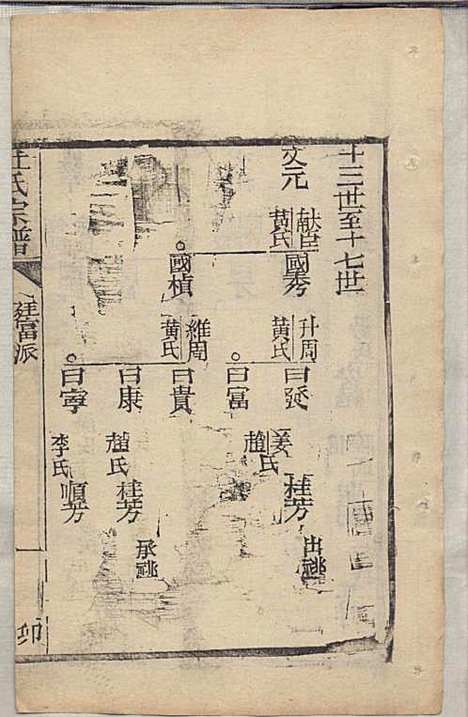 十三世至十七世
文元
獻臣
黃氏
國秀
升周
黃氏
曰發
姜氏
桂芳
出祧
曰富
趙氏
國楨
維周
黃氏
曰貴
曰康
趙氏
桂芳
承祧
曰寧
李氏
順芳
氏宗譜
廷富派